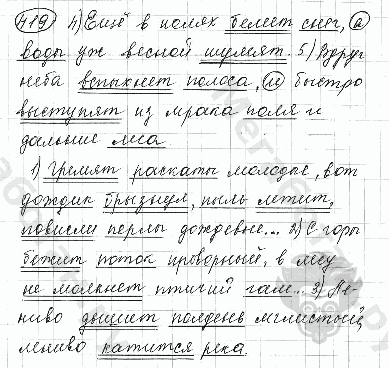 419 4) Ещё в полях белеет снег, а
воды уж весной шумят. 5) Вдруг
неба вспыхнет полоса, и быстро
выступят из мрака поля и
дальние леса.
1) Гремят раскаты молодые, вот
дождик брызнул, пыль летит,
повисли перлы дождевые... 2) С горы
бежит поток проворный, в лесу
не молкнет птичий гам... 3) Ле-
ниво дышит полдень мглистый,
лениво катится река.